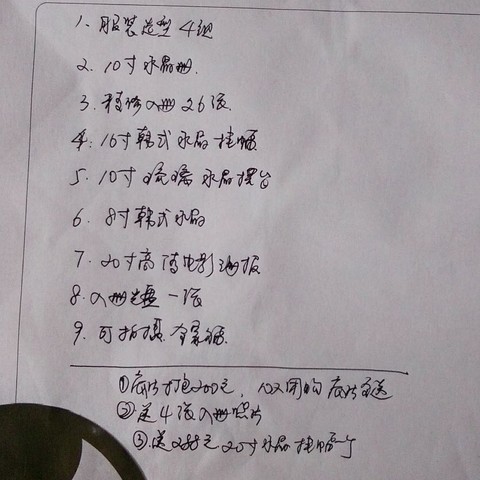 1、服装造型4组
2. 10寸水晶册.
3. 精修入册26张
4. 16寸韩式水晶挂幅
5. 10寸琉璃水晶摆台
6. 8寸韩式水晶
7. 20寸高清电影海报
8. 入册光盘一张
9. 可拍摄全家福
①底片打包200元, 的底片全送
②送4张入册照片
③送288元20寸水晶挂幅一个